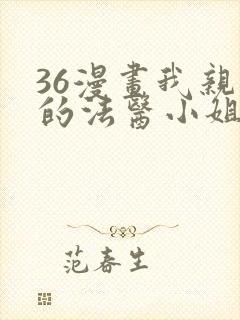 36漫畫我親
的法醫小姐
范春生